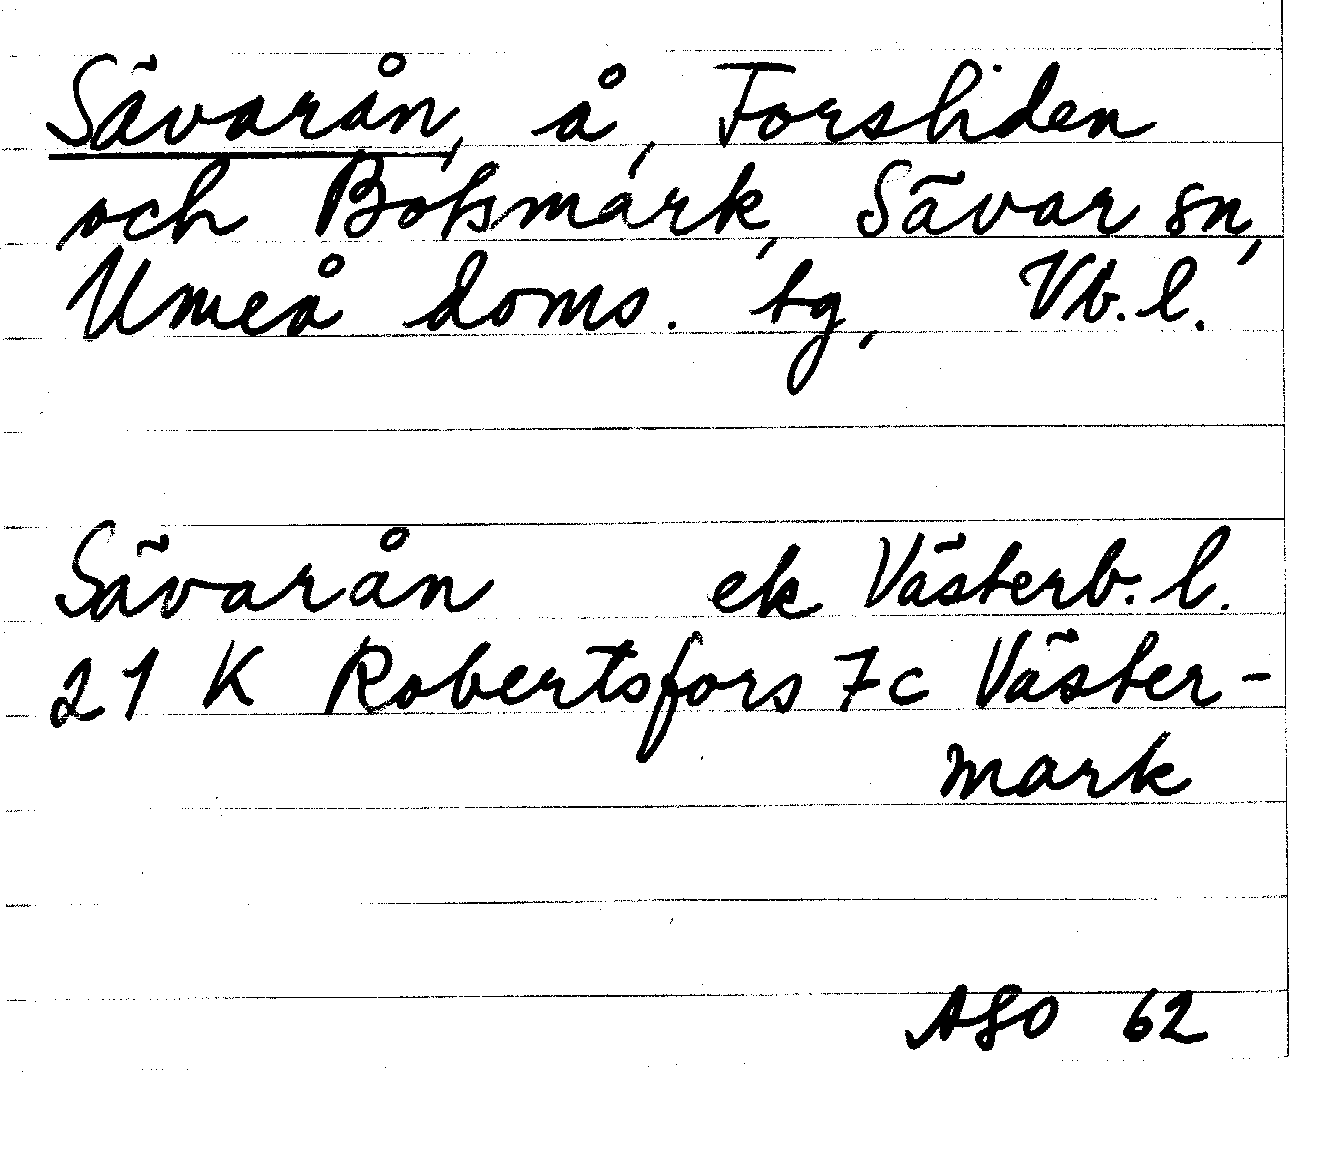 Sävarån, å, Forsliden
och Botsmark, Sävar sn,
Umeå doms. tg, Vb. l.
Sävarån ek Västerb. l.
21 K Robertsfors 7c Väster-
mark
ASO 62